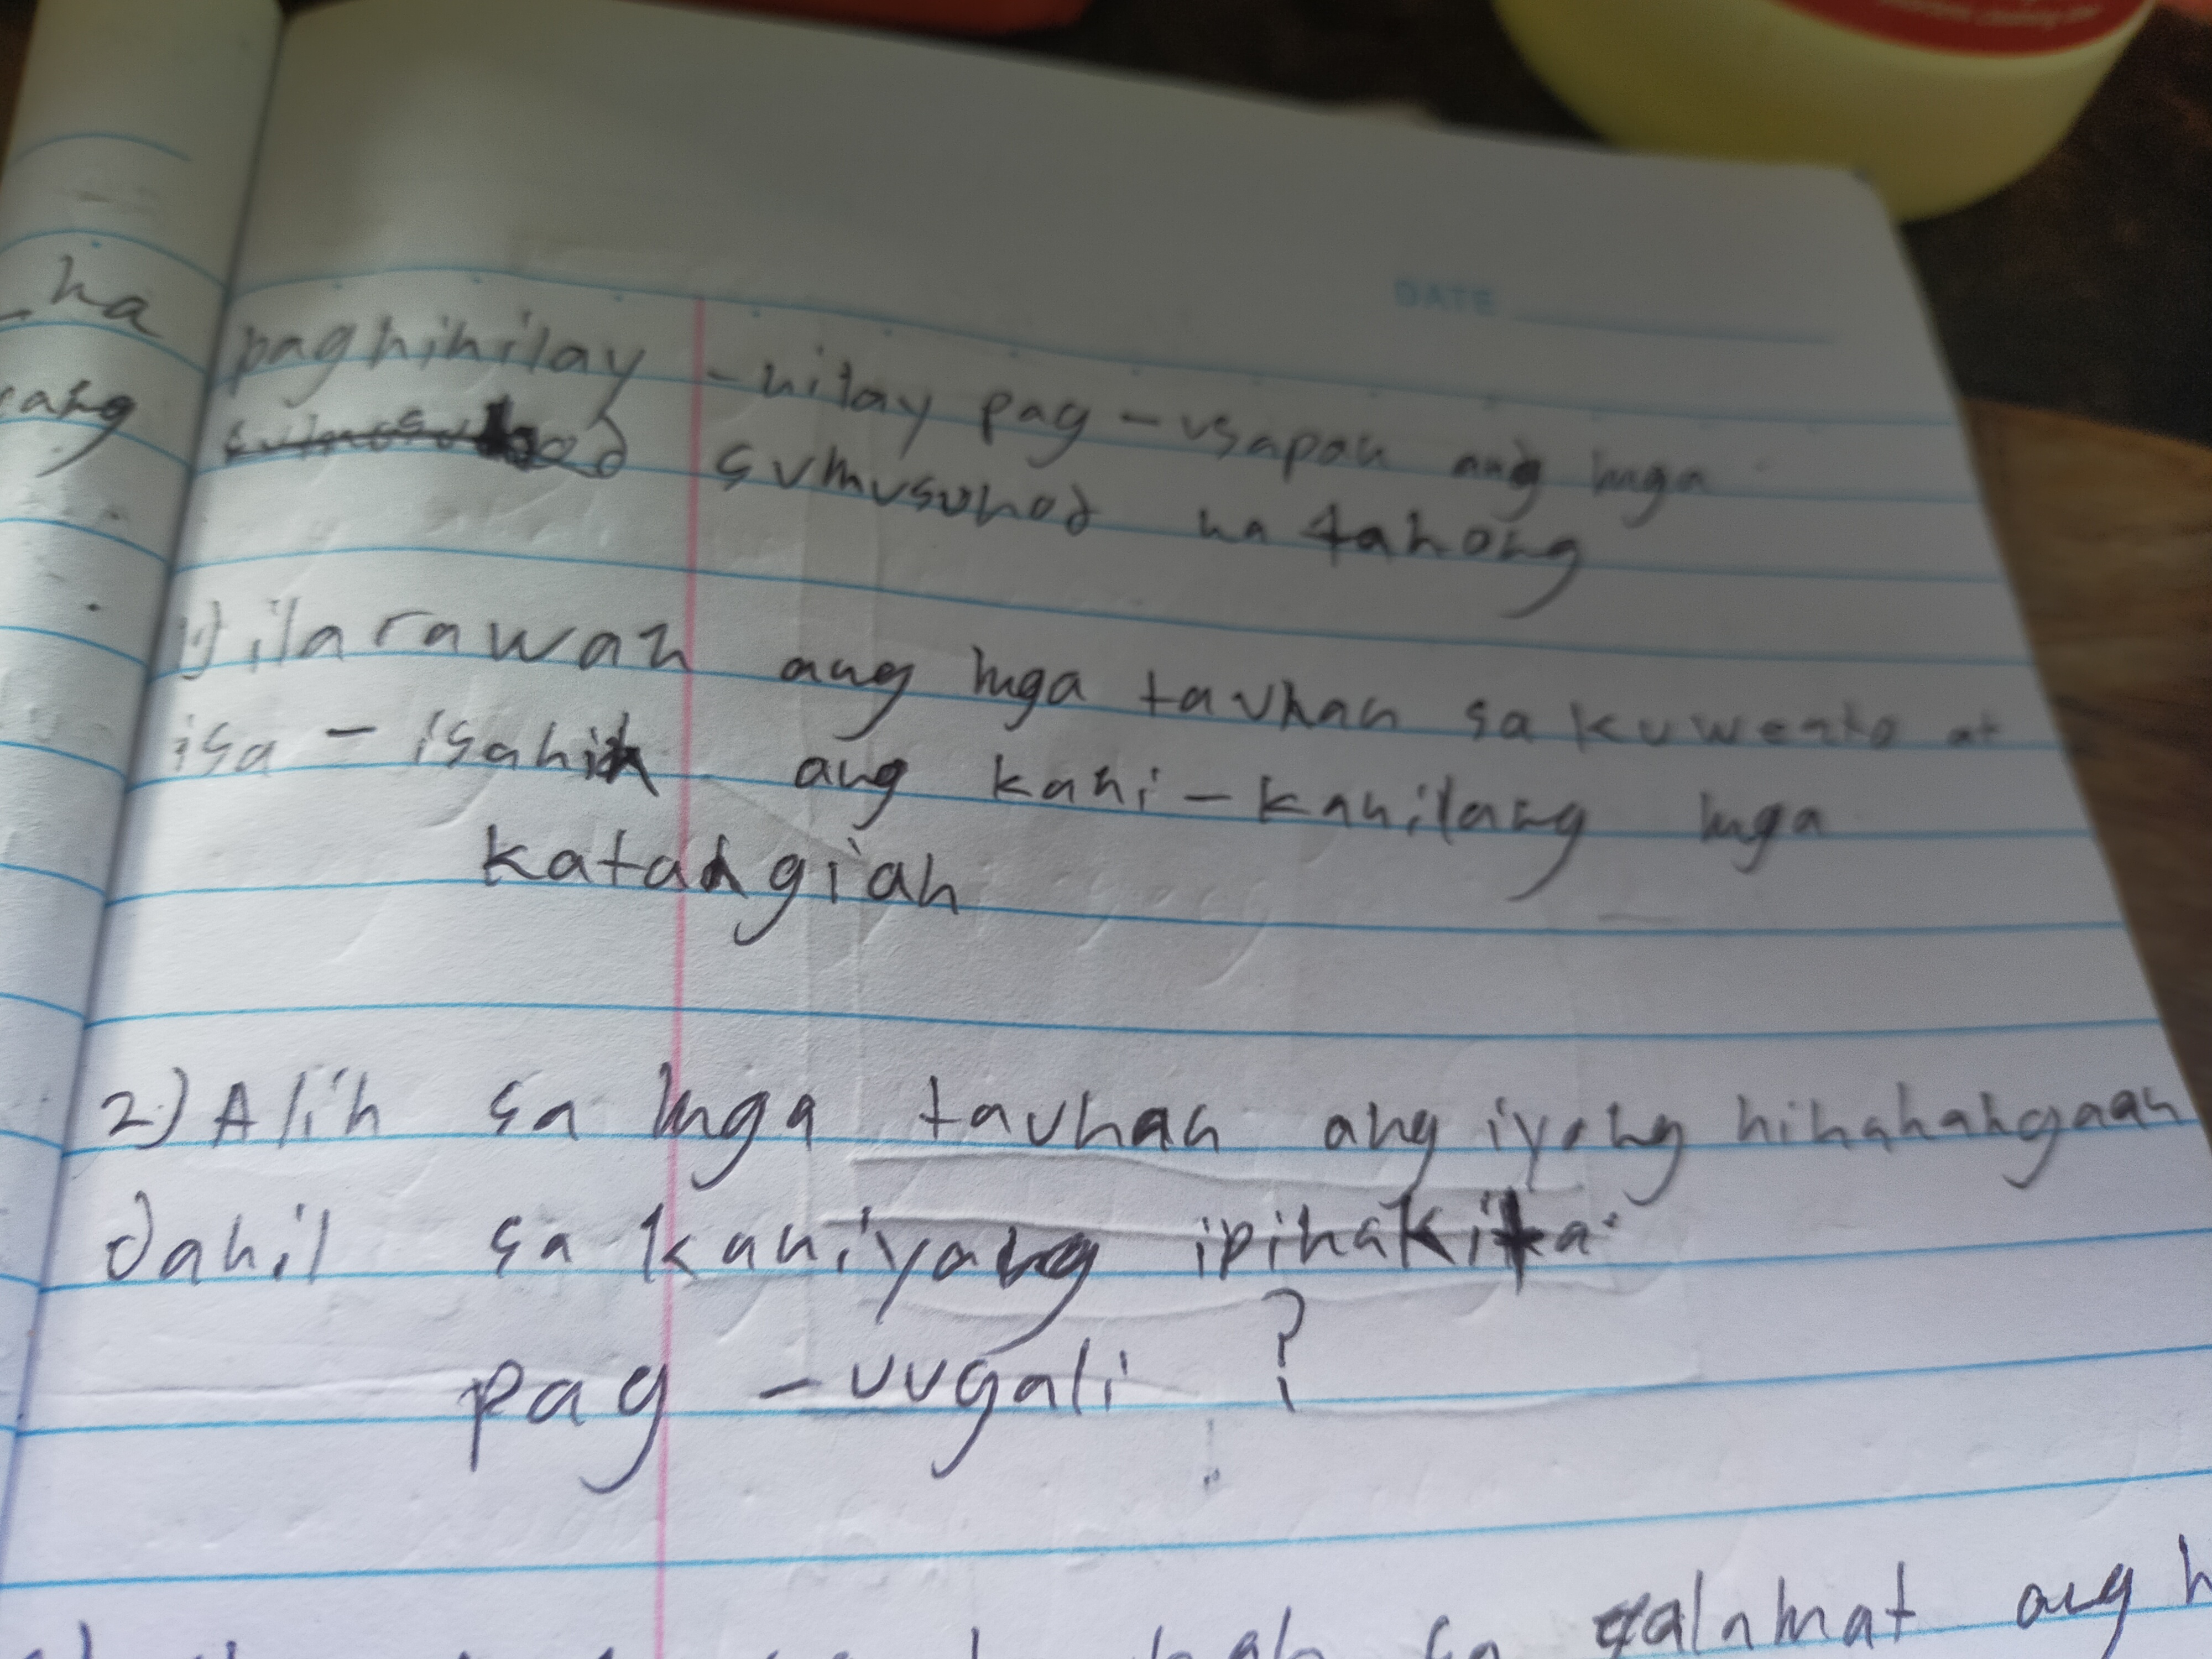 ha
rang
DATE
paghihilay - nilay pag - usapan ang mga
sumusunod na tanong
1) ilarawan ang mga tauhan sa kuwento at
isa - isahin ang kani - kanilang mga
katangian
2) Alin sa mga tauhan ang iyong hinahangaan
dahil sa kaniyang ipinakita
pag - uugali ?
sa alamat ang